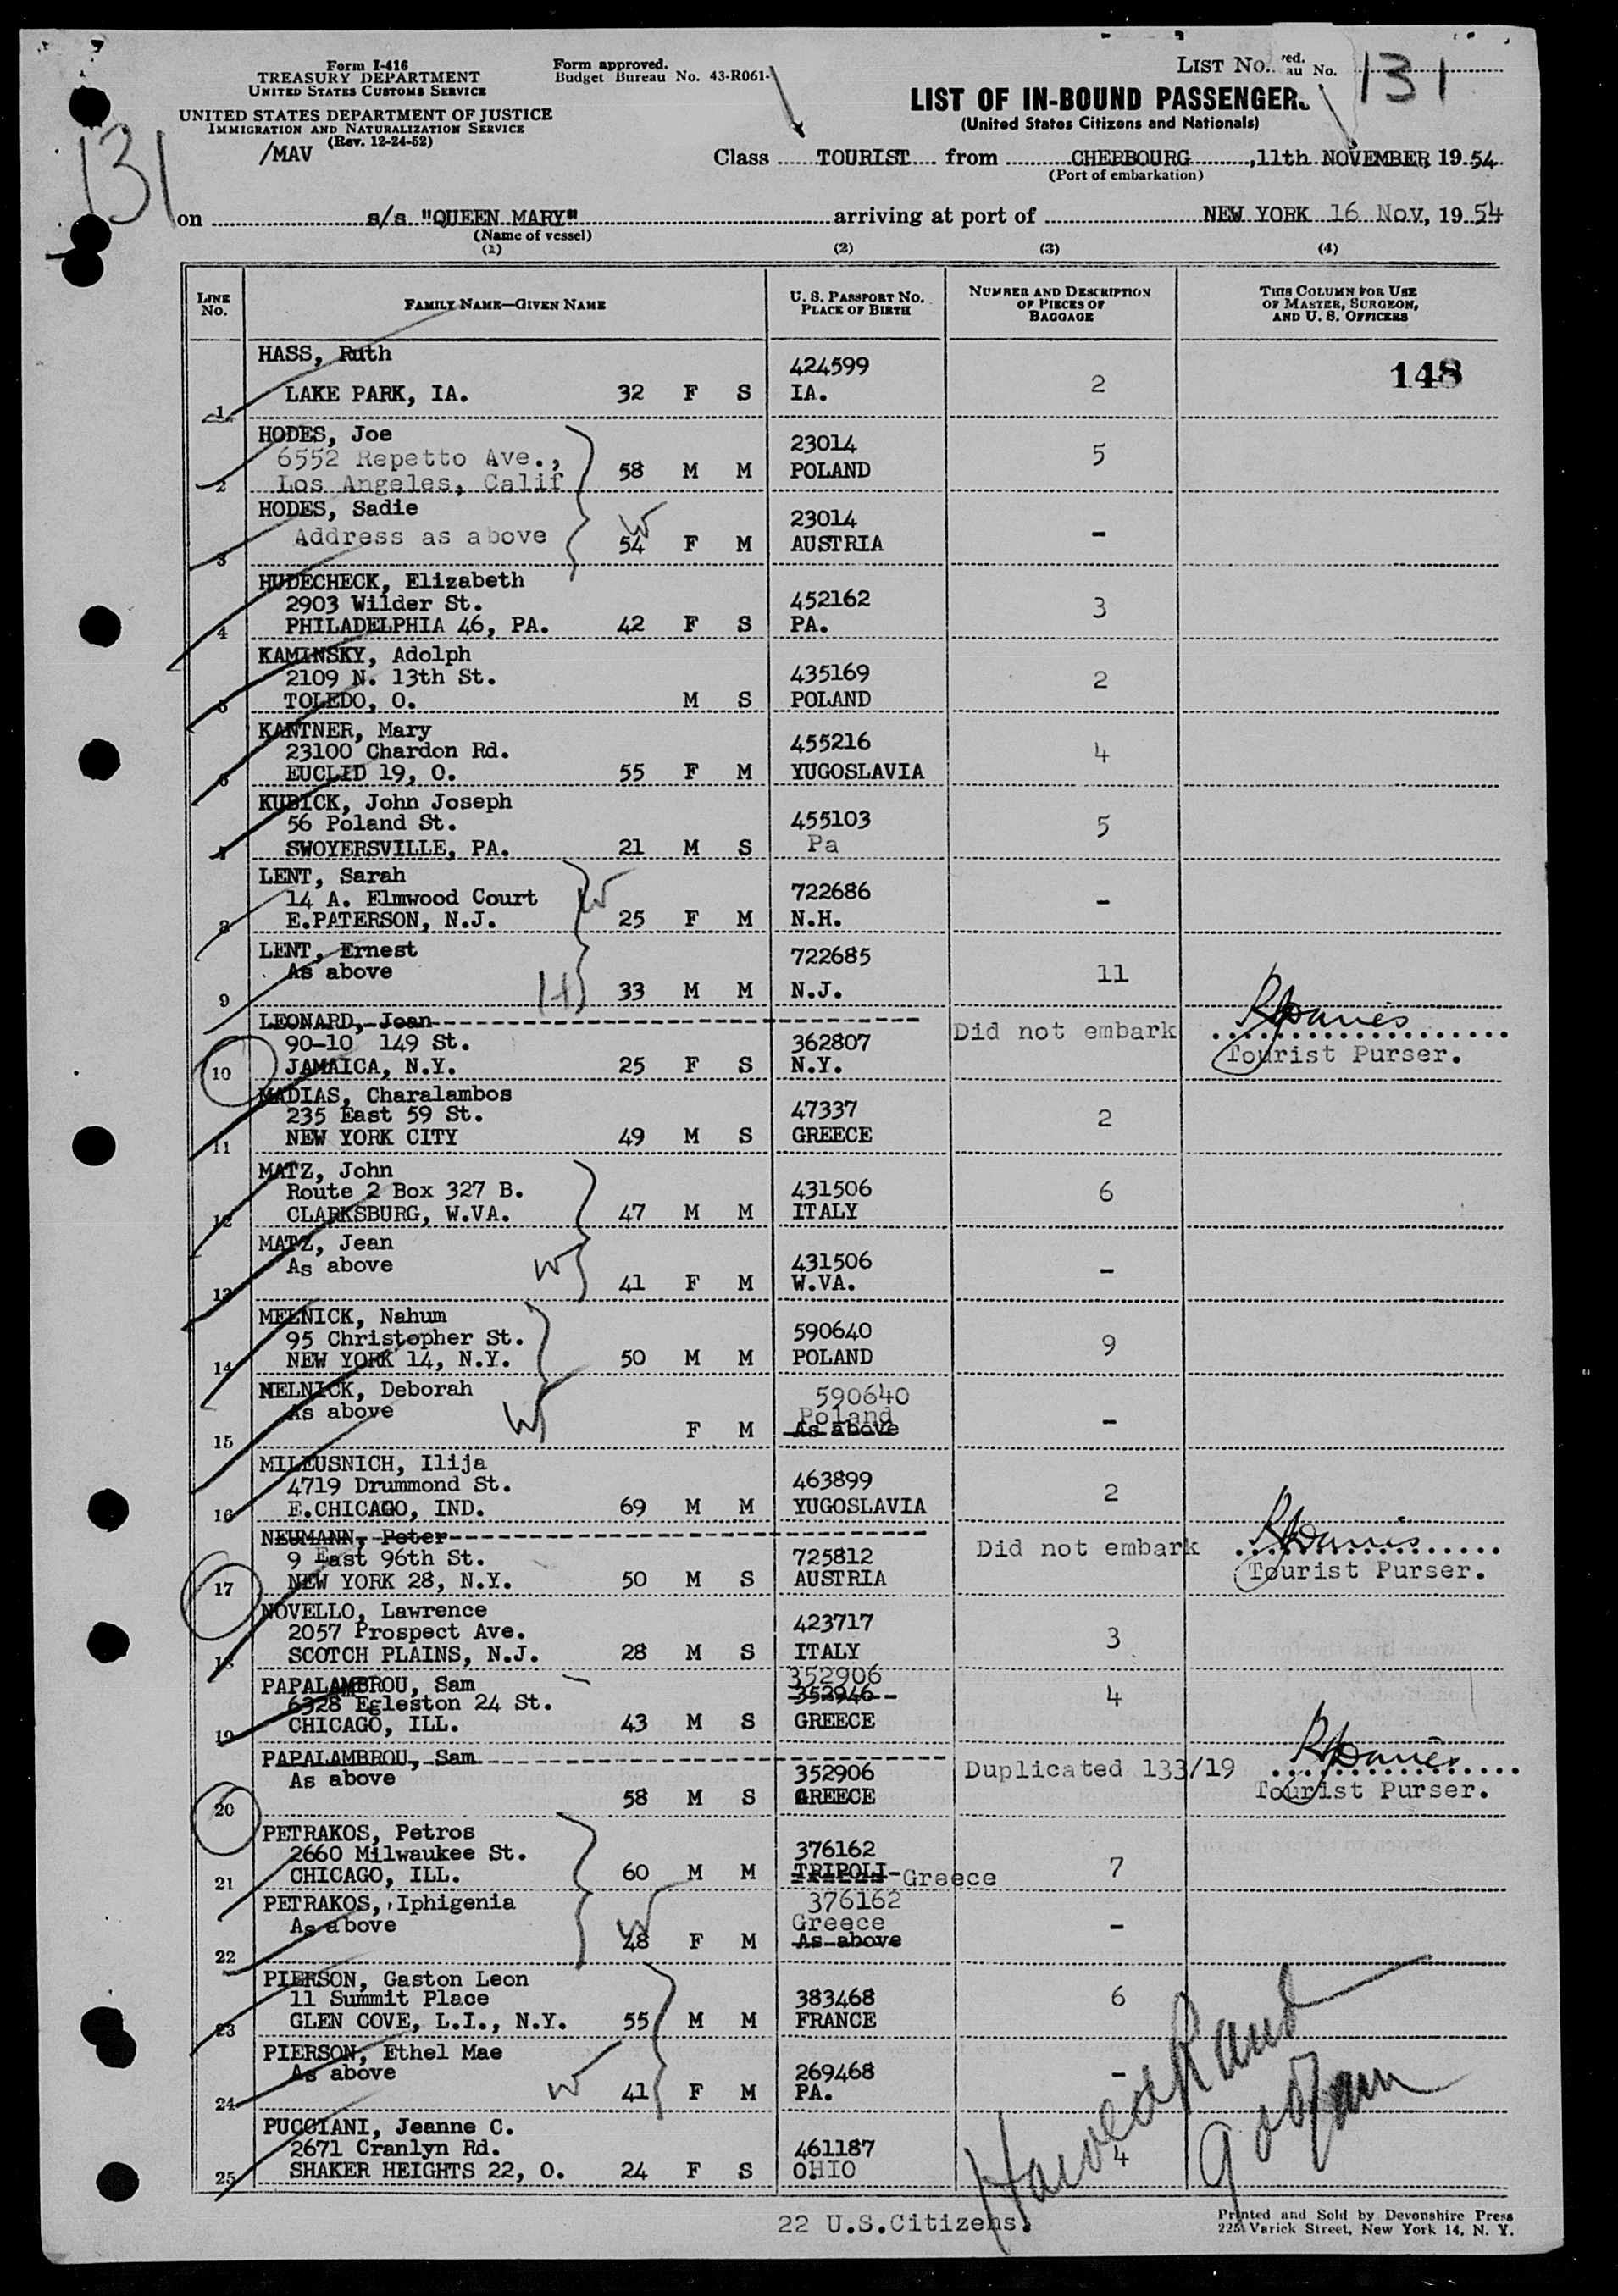 Form I-416
TREASURY DEPARTMENT
UNITED STATES CUSTOMS SERVICE
UNITED STATES DEPARTMENT OF JUSTICE
IMMIGRATION AND NATURALIZATION SERVICE
(Rev. 12-24-52)
/MAV
131
Form approved.
Budget Bureau No. 43-R061-
LIST No. 131
ved.
au No.
LIST OF IN-BOUND PASSENGER
(United States Citizens and Nationals)
Class TOURIST from CHERBOURG, 11th NOVEMBER, 1954
(Port of embarkation)
on s/s "QUEEN MARY" arriving at port of NEW YORK 16 Nov, 1954
(Name of vessel)
(1) (2) (3) (4)
LINE No. FAMILY NAME—GIVEN NAME U. S. PASSPORT No. PLACE OF BIRTH NUMBER AND DESCRIPTION OF PIECES OF BAGGAGE THIS COLUMN FOR USE OF MASTER, SURGEON, AND U. S. OFFICERS
HASS, Ruth 424599 148
1 LAKE PARK, IA. 32 F S IA. 2
HODES, Joe 23014 5
6552 Repetto Ave.,
2 Los Angeles, Calif 58 M M POLAND
HODES, Sadie W 23014
3 Address as above 54 F M AUSTRIA -
HUDECHECK, Elizabeth
2903 Wilder St. 452162 3
4 PHILADELPHIA 46, PA. 42 F S PA.
KAMINSKY, Adolph
2109 N. 13th St. 435169 2
5 TOLEDO, O. M S POLAND
KANTNER, Mary
23100 Chardon Rd. 455216 4
6 EUCLID 19, O. 55 F M YUGOSLAVIA
KUBICK, John Joseph
56 Poland St. 455103 5
7 SWOYERSVILLE, PA. 21 M S Pa
LENT, Sarah W
14 A. Elmwood Court 722686 -
8 E.PATERSON, N.J. 25 F M N.H.
LENT, Ernest 722685
As above 11
9 H 33 M M N.J.
LEONARD, Jean Did not embark
90-10 149 St. 362807
10 JAMAICA, N.Y. 25 F S N.Y. Tourist Purser.
MADIAS, Charalambos
235 East 59 St. 47337 2
11 NEW YORK CITY 49 M S GREECE
MATZ, John
Route 2 Box 327 B. 431506 6
12 CLARKSBURG, W.VA. 47 M M ITALY
MATZ, Jean
As above W 431506 -
13 41 F M W.VA.
MELNICK, Nahum
95 Christopher St. 590640 9
14 NEW YORK 14, N.Y. 50 M M POLAND
MELNICK, Deborah 590640
As above W Poland -
15 F M As above
MILEUSNICH, Ilija
4719 Drummond St. 463899 2
16 E.CHICAGO, IND. 69 M M YUGOSLAVIA
NEUMANN, Peter Did not embark
9 East 96th St. 725812
17 NEW YORK 28, N.Y. 50 M S AUSTRIA Tourist Purser.
NOVELLO, Lawrence
2057 Prospect Ave. 423717 3
18 SCOTCH PLAINS, N.J. 28 M S ITALY
PAPALAMBROU, Sam 352906
6328 Egleston 24 St. 352946 4
19 CHICAGO, ILL. 43 M S GREECE
PAPALAMBROU, Sam Duplicated 133/19
As above 352906
20 58 M S GREECE Tourist Purser.
PETRAKOS, Petros
2660 Milwaukee St. 376162 7
21 CHICAGO, ILL. 60 M M TRIPOLI-Greece
PETRAKOS, Iphigenia 376162
As above W Greece -
22 48 F M As above
PIERSON, Gaston Leon
11 Summit Place 383468 6
23 GLEN COVE, L.I., N.Y. 55 M M FRANCE
PIERSON, Ethel Mae
As above W 269468 -
24 41 F M PA.
PUCCIANI, Jeanne C.
2671 Cranlyn Rd. 461187 4
25 SHAKER HEIGHTS 22, O. 24 F S OHIO
22 U.S.Citizens.
Printed and Sold by Devonshire Press
225 Varick Street, New York 14, N. Y.